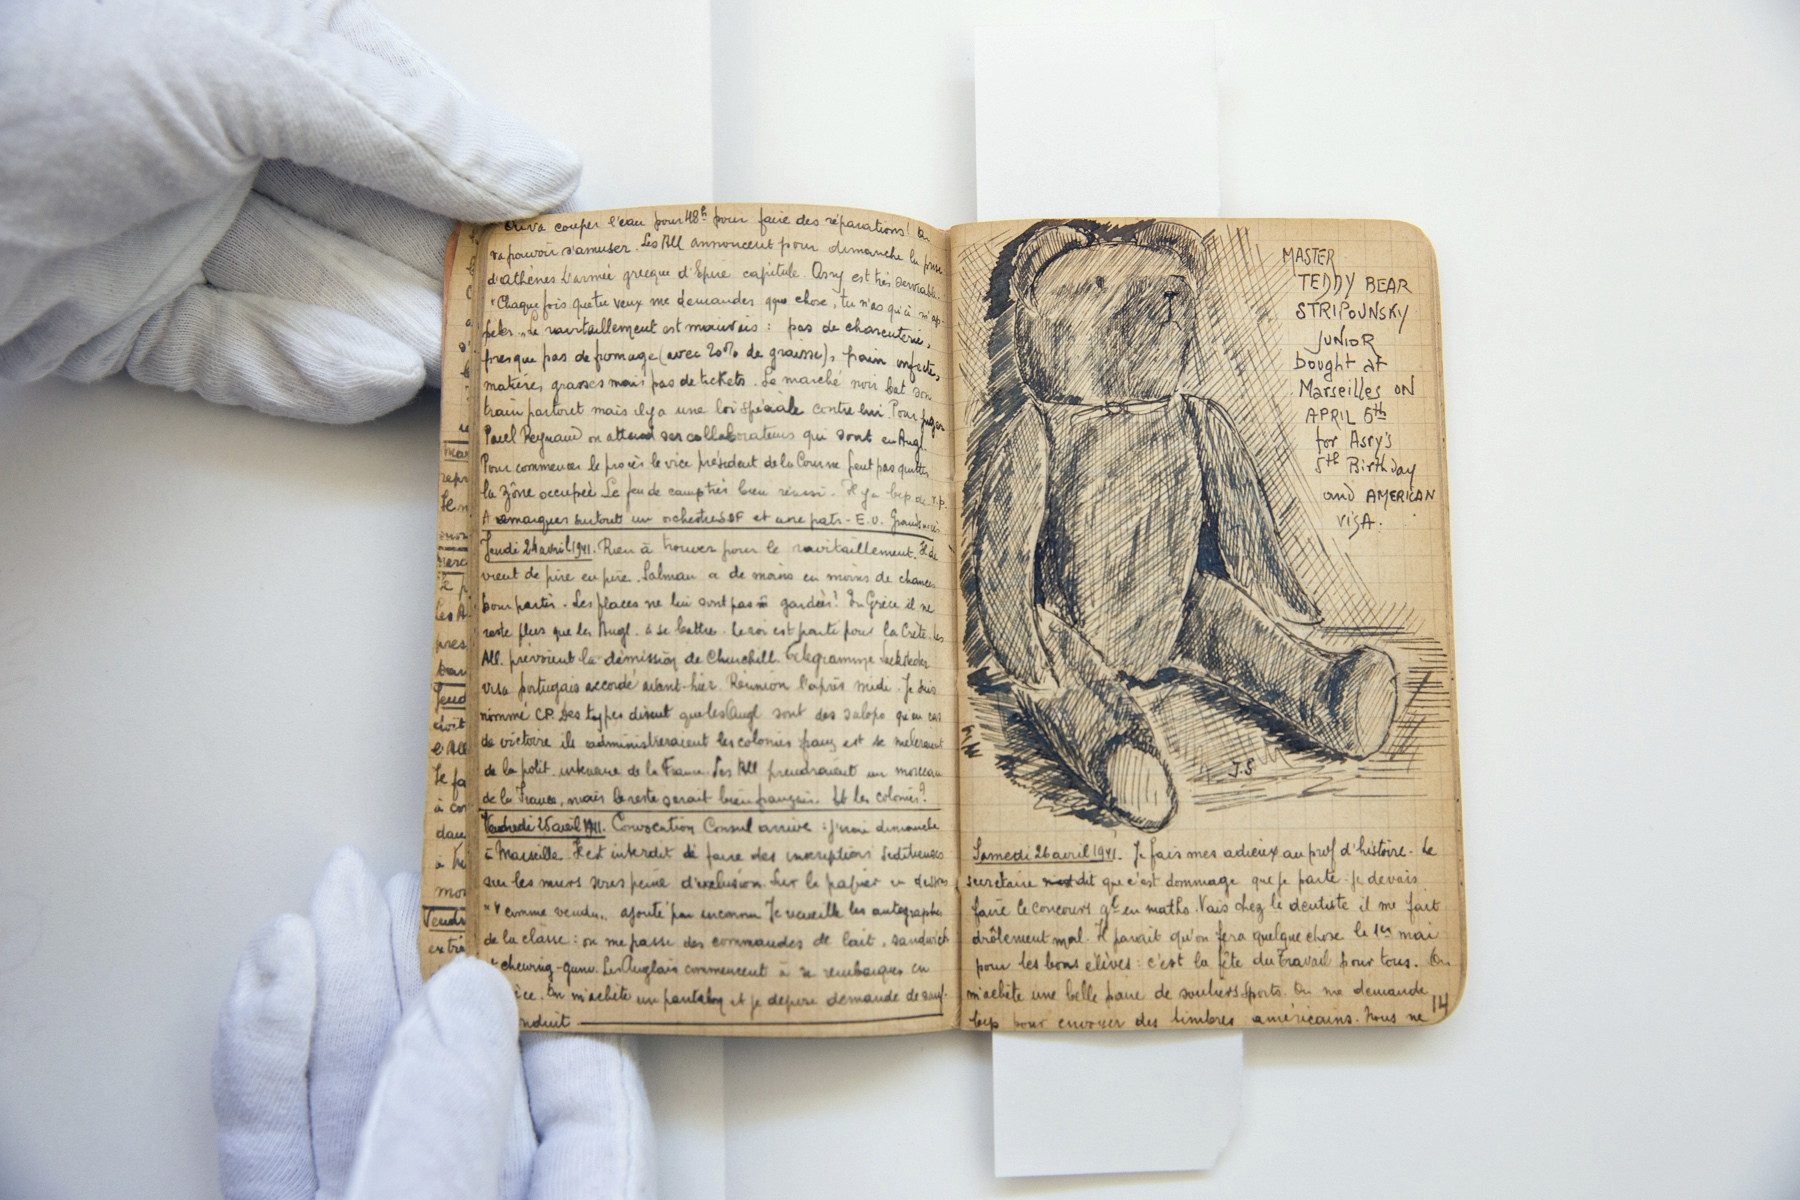 On va couper l'eau pour 48h pour faire des réparations! On
va pouvoir s'amuser. Les All annoncent pour dimanche la prise
d'athènes L'armée grecque d'Epire capitule. Osry est très serviable.
"Chaque fois que tu veux me demandes qque chose, tu n'as qu'à m'ap-
peler". Le ravitaillement est mauvais : pas de charcuterie,
presque pas de fromage (avec 20% de graisse), pain infecte,
matières grasses mais pas de tickets. Le marché noir bat son
train partout mais il y a une loi spéciale contre lui. Pour juger
Paul Reynaud on attend ses collaborateurs qui sont en Angl.
Pour commencer le procès le vice président de la Cour ne peut pas quitter
la zône occupée. Le feu de camp très bien réussi. Il y a bcp de
A remarquer surtout un orchestre SDF et une patr. E.U. Grand succès
Jeudi 24 avril 1941. Rien à trouver pour le ravitaillement. Il de
vient de pire en pire. Salman a de moins en moins de chances
pour partir. Les places ne lui sont pas gardées! En Grèce il ne
reste plus que les Angl. à se battre. Le roi est parti pour la Crète. Les
All. prévoient la démission de Churchill. Télégramme
visa portugais accordé avant-hier. Réunion l'après midi. Je suis
nommé CP. Des types disent que les Angl sont des salops qu'en cas
de victoire ils administreraient les colonies franç et se mêleraient
de la polit. intérieure de la France. Les All prendraient un morceau
de la France, mais le reste serait bien français. Et les colonies?
Vendredi 25 avril 1941. Convocation Consul arrive : j'irai dimanche
à Marseille. Il est interdit de faire des inscriptions séditieuses
sur les murs sous peine d'exclusion. Sur le papier en dessous
"V comme vendu" ajouté par inconnu Je recueille les autographes
de la classe : on me passe des commandes de lait, sandwich
chewing-gum. Les Anglais commencent à se rembarquer en
On m'achète un pantalon et je dépose demande de sauf-
conduit
MASTER
TEDDY BEAR
STRIPOUNSKY
JUNIOR
bought at
Marseilles ON
APRIL 5th
for Asry's
5th Birthday
and AMERICAN
VISA.
J.S
Samedi 26 avril 1941. Je fais mes adieux au prof d'histoire. Le
secretaire dit que c'est dommage que je parte : je devais
faire le concours gl en maths. Vais chez le dentiste il me fait
drôlement mal. Il parait qu'on fera quelque chose le 1er mai
pour les bons élèves : c'est la fête du Travail pour tous. On
m'achète une belle paire de souliers Sports. On me demande
bcp pour envoyer des timbres américains. Nous ne
14